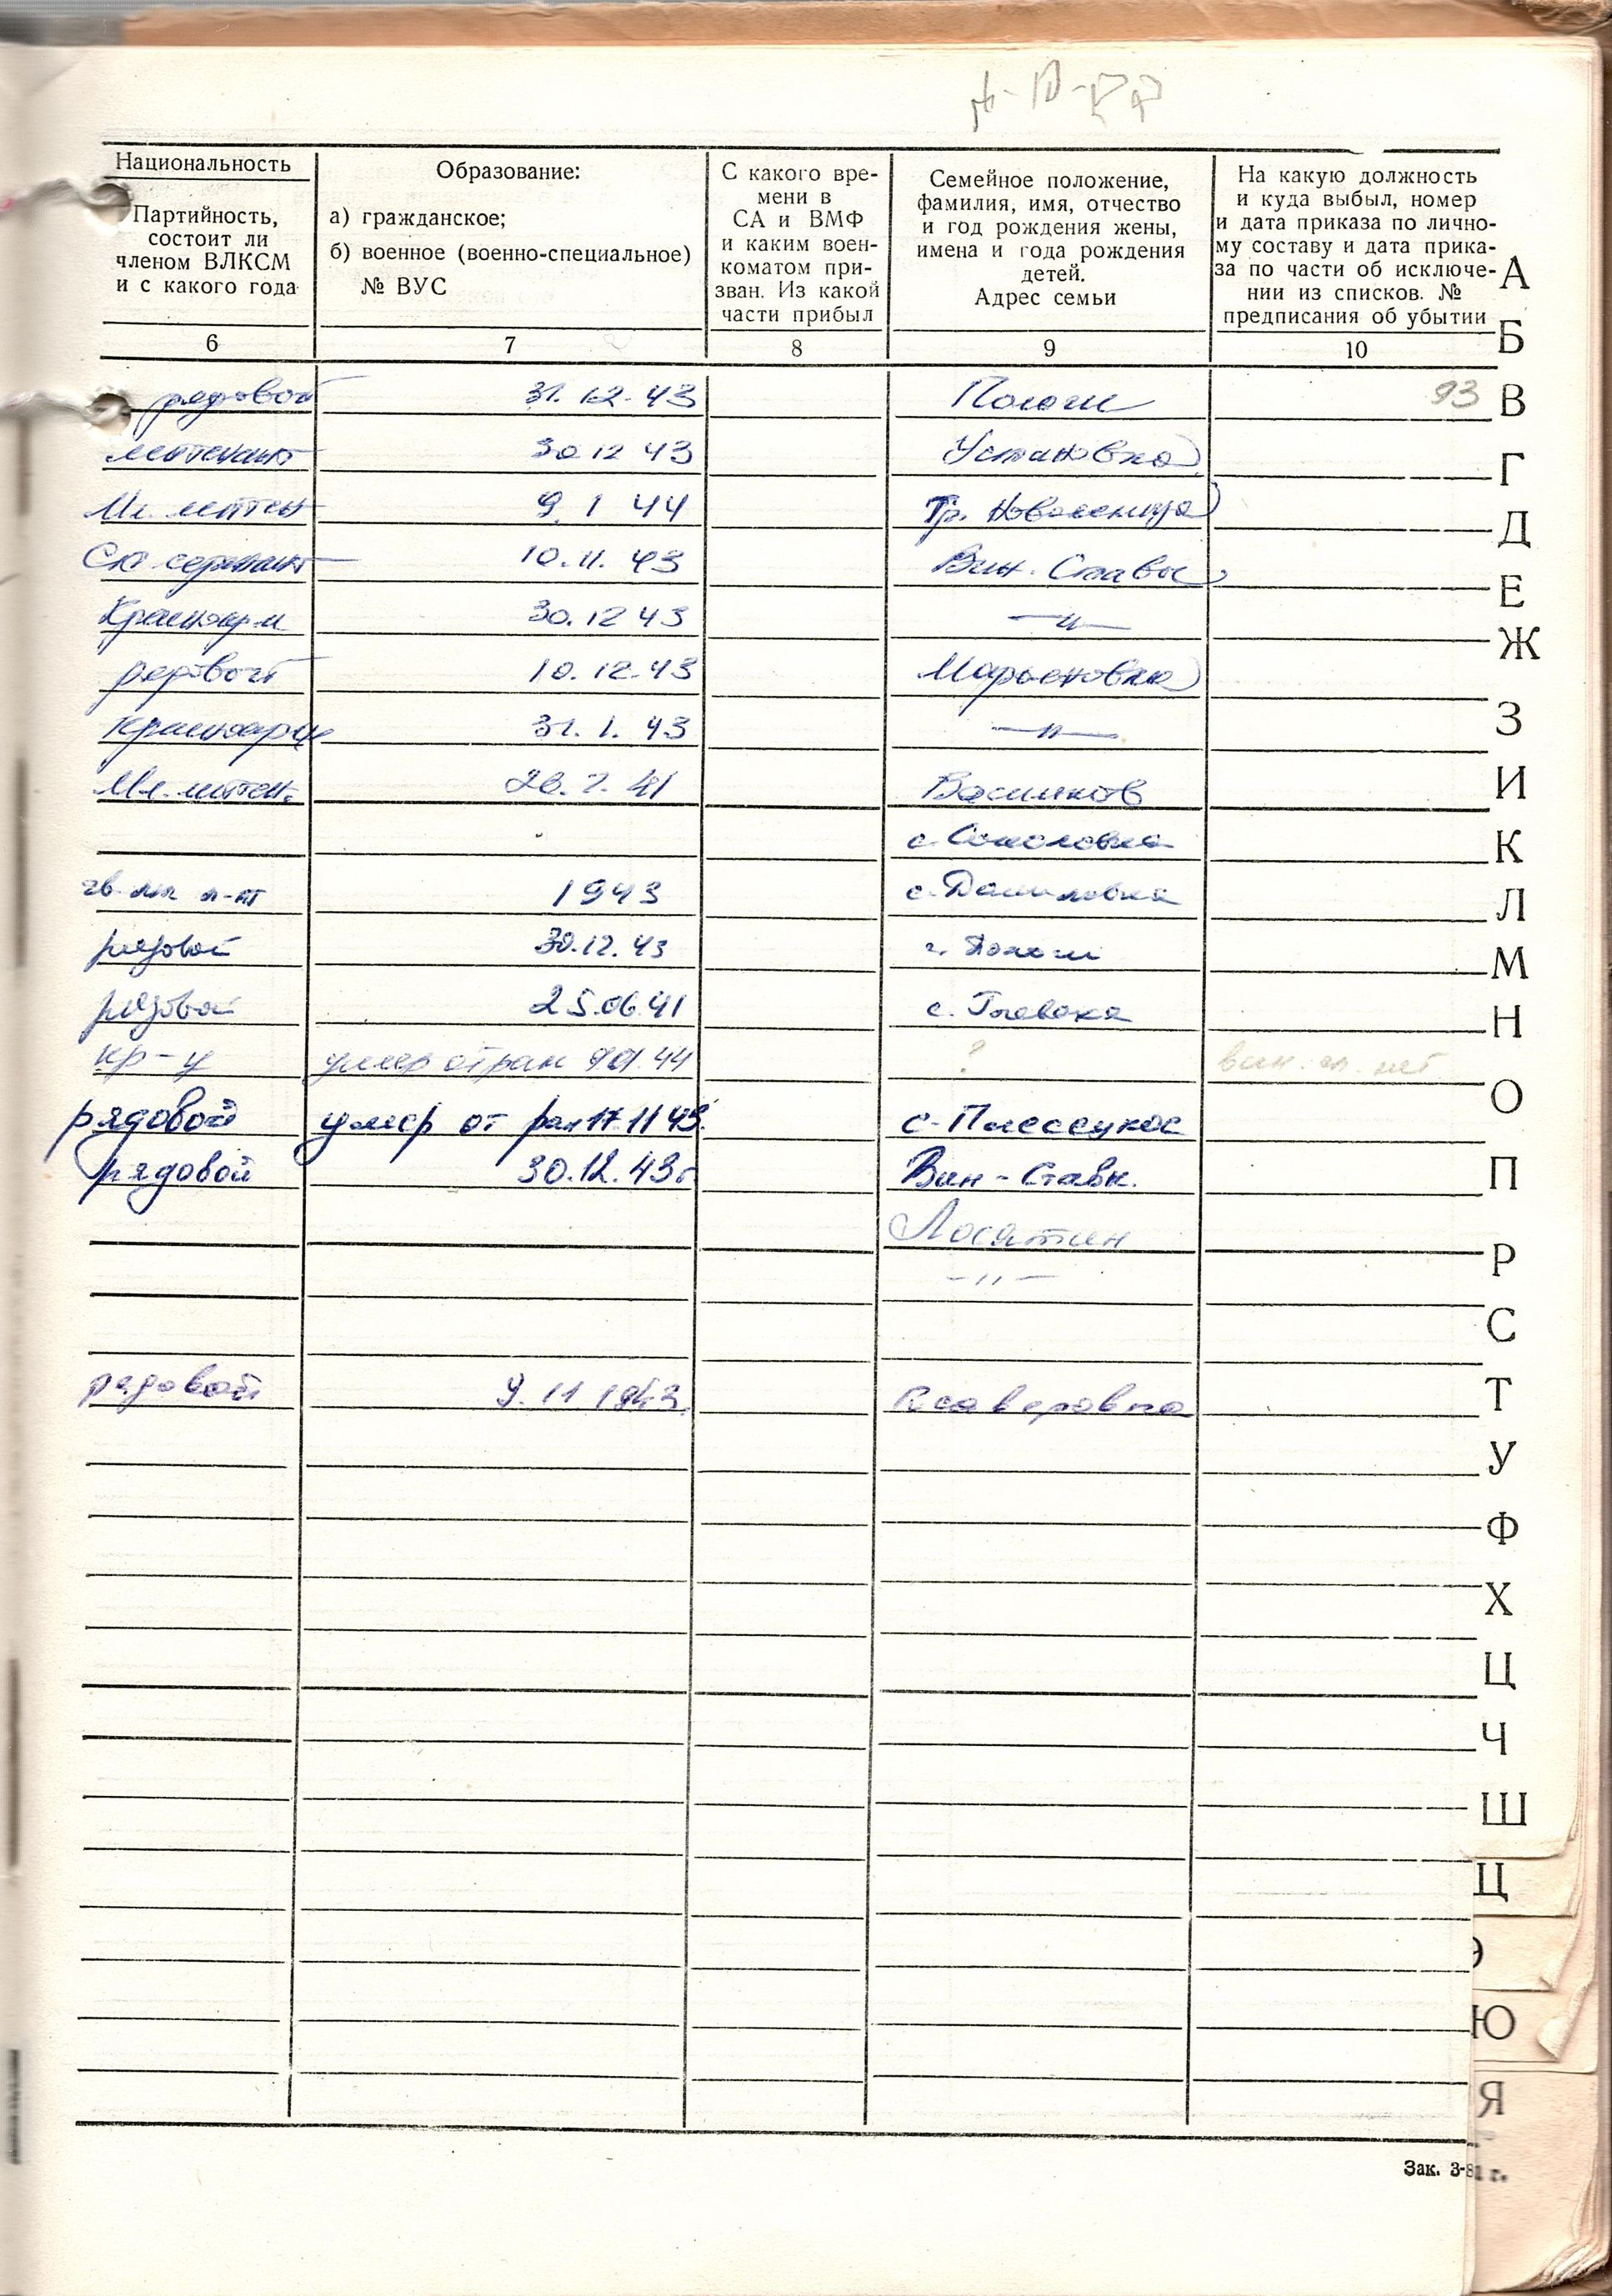 Национальность
Партийность,
состоит ли
членом ВЛКСМ
и с какого года
Образование:
а) гражданское;
б) военное (военно-специальное)
№ ВУС
С какого вре-
мени в
СА и ВМФ
и каким воен-
коматом при-
зван. Из какой
части прибыл
Семейное положение,
фамилия, имя, отчество
и год рождения жены,
имена и года рождения
детей.
Адрес семьи
На какую должность
и куда выбыл, номер
и дата приказа по лично-
му составу и дата прика-
за по части об исключе-
нии из списков. №
предписания об убытии
6 7 8 9 10
рядовой 31.12.43 Пологи 93
лейтенант 30 12 43 Устиновка
Мл. лейтен 9. 1 44
Ст. сержант 10.11.43 Вин. Ставы
Красноарм 30.12 43 —"—
рядовой 10.12.43 Марьяновка
Красноарм 31.1.43 —"—
Мл. лейтен. 41 Васильков
с. Соколовка
гв. мл л-нт 1943 с. Даниловка
рядовой 30.12.43 г. Пологи
рядовой 25.06.41 с. Глеваха
кр-ц умер от ран 44 ?
рядовой умер от ран 17 11 43. с. Плесецкое
рядовой 30.12.43г Вин-Ставк.
Лосятин
-"-
рядовой 9.11 1943. Ксаверовка
А
Б
В
Г
Д
Е
Ж
З
И
К
Л
М
Н
О
П
Р
С
Т
У
Ф
Х
Ц
Ч
Ш
Ю
Я
Зак. 3-81 г.